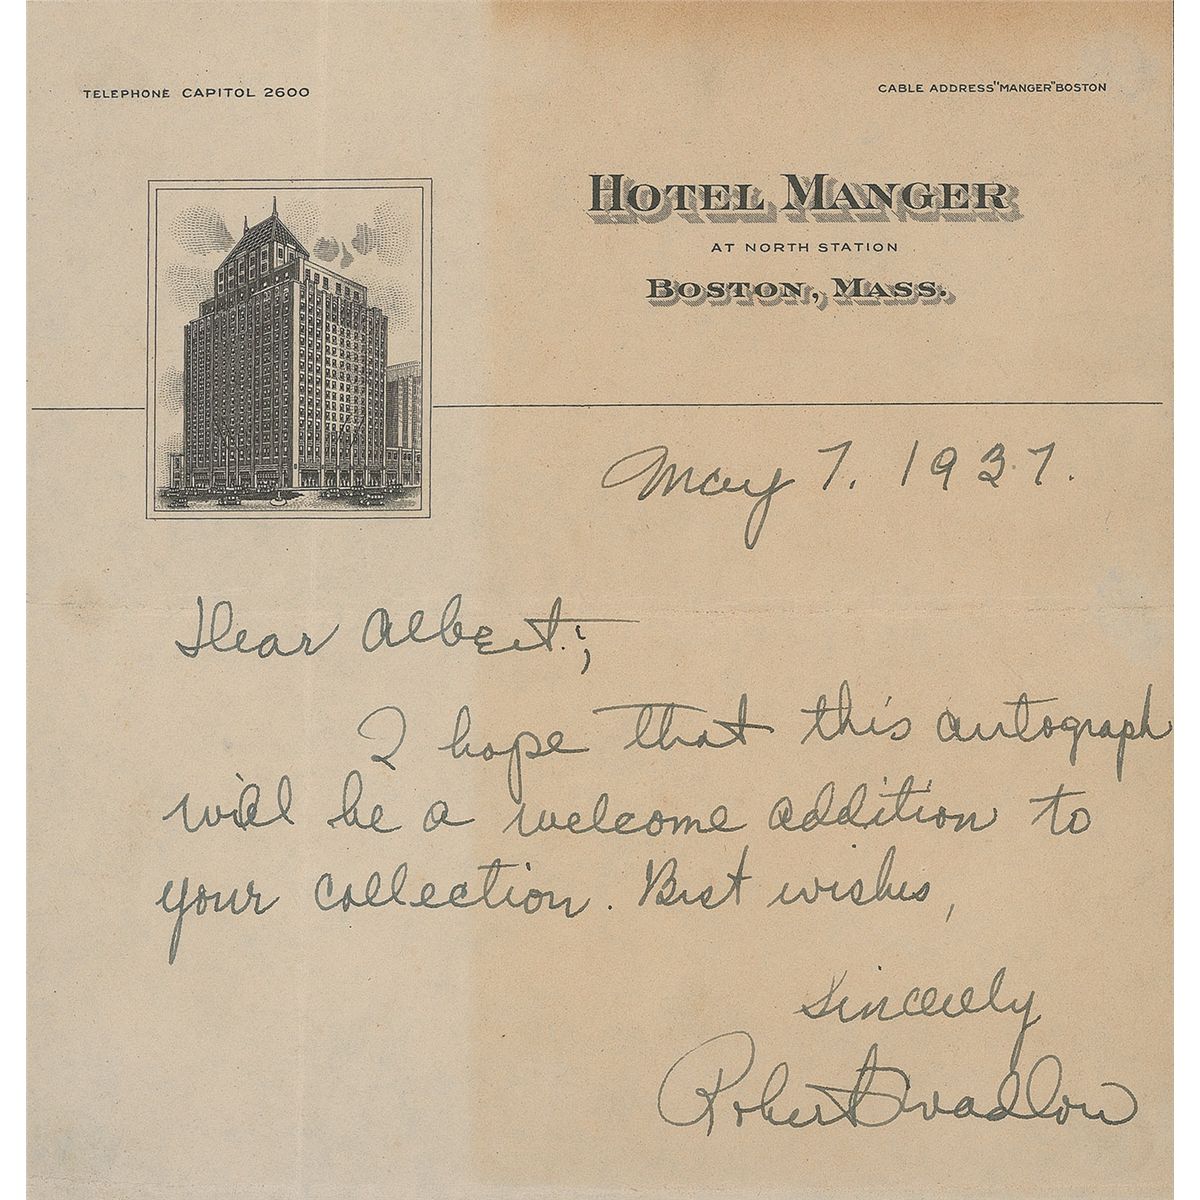 TELEPHONE CAPITOL 2600
CABLE ADDRESS "MANGER" BOSTON
HOTEL MANGER
AT NORTH STATION
BOSTON, MASS.
May 7. 1937.
Dear Albert;
I hope that this autograph
will be a welcome addition to
your collection. Best wishes,
Sincerely
Robert Wadlow